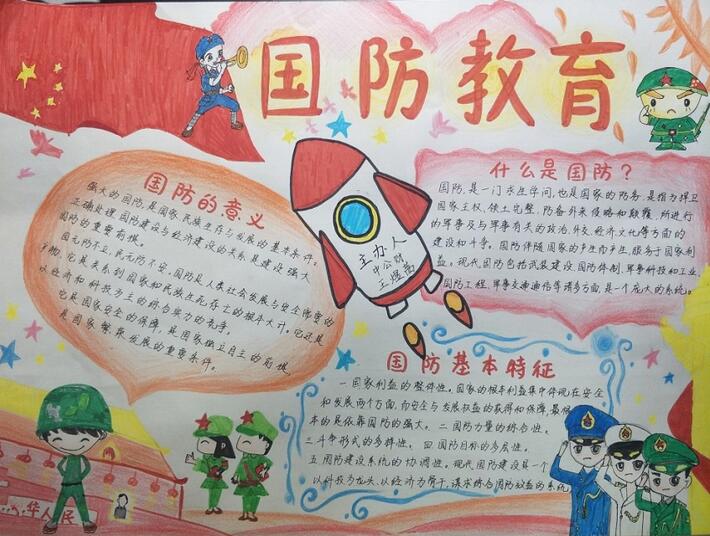 国防教育
国防的意义
强大的国防,是国家、民族生存与发展的基本条件。
正确处理国防建设与经济建设的关系,是建设强大
国防的重要前提。
国无防不立,民无防不安,国防是人类社会发展与安全需要的
产物,它是关系到国家和民族生死存亡的根本大计。它还是
以经济和科技为主的综合实力的竞争。
它是国家安全的保障,是国家独立自主的前提,
是国家繁荣发展的重要条件。
主办人
王煜
什么是国防?
国防,是一门求生学问,也是国家的防务,是指为捍卫
国家主权、领土完整,防备外来侵略和颠覆,所进行
的军事及与军事有关的政治、外交、经济文化等方面的
建设和斗争。国防伴随国家的产生而产生,服务于国家利
益。现代国防包括武装建设,国防体制,军事科技和工业,
国防工程,军事交通通信等诸多方面,是一个庞大的系统。
国防基本特征
一国家利益的整体性。国家的根本利益集中体现在安全
和发展两个方面,而安全与发展权益的获得和保障,最根
本的是依靠国防的强大。二国防力量的综合性。
三斗争形式的多样性。四国防目标的多层性。
五国防建设系统的协调性。现代国防建设是一个
以科技为龙头,以经济为骨干,谋求综合国防效益的系统
华人民